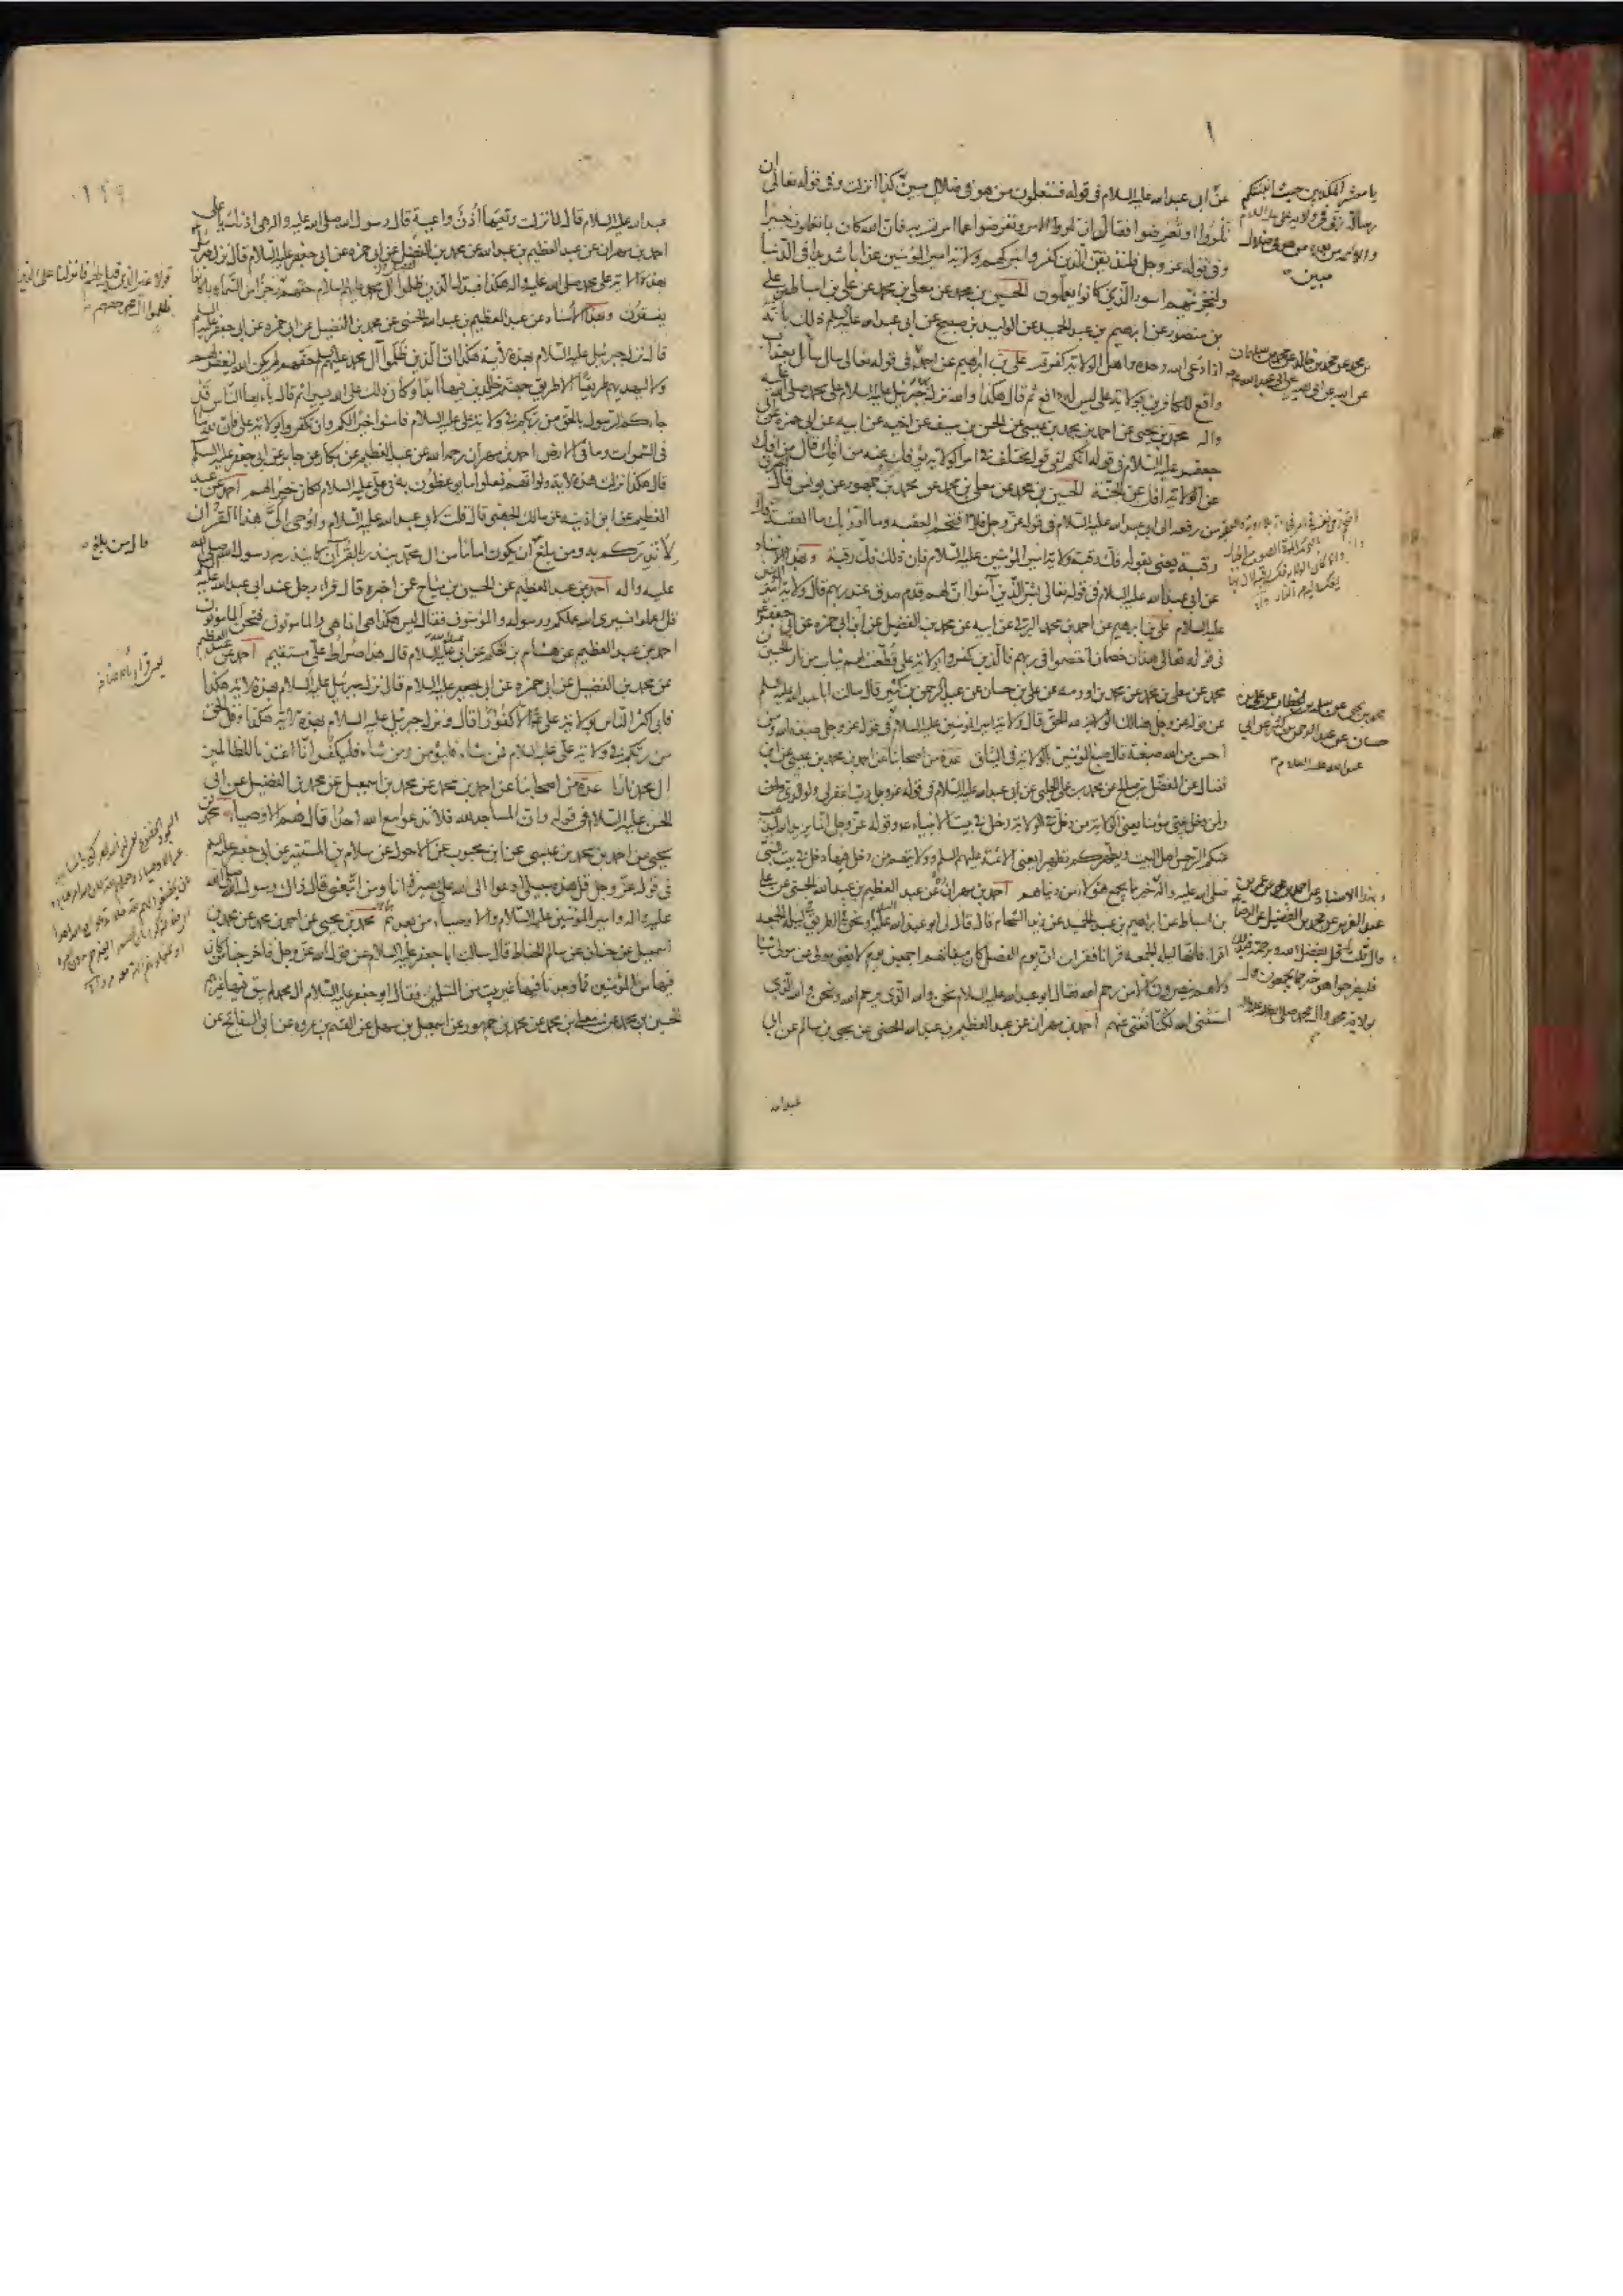 عن ابى عبد الله عليه السلام فى قوله فستعلمون من هو فى ضلال مبين كذا انزلت وفى قوله تعالى ان
تلووا او تعرضوا فقال ان تلووا الامر وتعرضوا عما امرتم به فان الله كان بما تعملون خبيرا
وفى قوله عز وجل فلنذيقن الذين كفروا بتركهم ولاية امير المؤمنين عذابا شديدا فى الدنيا
ولنجزينهم اسوء الذى كانوا يعملون الحسين بن محمد عن معلى بن محمد عن على بن اسباط عن على
بن منصور عن ابرهيم بن عبد الحميد عن الوليد بن صبيح عن ابى عبد الله عليه السلم ذلك بانه
اذا دعى الله وحده واهل الولاية كفرتم على بن ابرهيم عن احمد فى قوله تعالى سال سائل بعذاب
واقع للكافرين بولاية على ليس له دافع ثم قال هكذا والله نزل بها جبرئيل عليه السلام على محمد صلى الله عليه
واله محمد بن يحيى عن احمد بن محمد بن عيسى عن الحسن بن سيف عن اخيه عن ابيه عن ابى حمزه عن ابى
جعفر عليه السلام فى قوله انكم لفى قول مختلف فى امر الولاية يؤفك عنه من افك قال من افك
عن الولاية افك عن الجنة الحسين بن محمد عن معلى بن محمد عن محمد بن جمهور عن يونس قال
من رفعه الى ابى عبد الله عليه السلام فى قوله عز وجل فلا اقتحم العقبه وما ادريك ما العقبة فك
رقبة يعنى بقوله فك رقبة ولاية امير المؤمنين عليه السلام فان ذلك فك رقبة وبهذا الاسناد
عن ابى عبد الله عليه السلام فى قوله تعالى بشر الذين آمنوا ان لهم قدم صدق عند ربهم قال ولاية امير المؤمنين
عليه السلام على بن ابرهيم عن احمد بن محمد البرقى عن ابيه عن محمد بن الفضيل عن ابى حمزه عن ابى جعفر
فى قوله تعالى هذان خصمان اختصموا فى ربهم فالذين كفروا بولاية على قطعت لهم ثياب من نار الحسين بن
محمد عن معلى بن محمد عن محمد بن اورمه عن على بن حسان عن عبد الرحمن بن كثير قال سالت ابا عبد الله عليه السلم
عن قوله عز وجل هنالك الولاية لله الحق قال ولاية امير المؤمنين عليه السلام فى قوله عز وجل صبغة الله ومن
احسن من الله صبغة قال صبغ المؤمنين بالولاية فى الميثاق عدة من اصحابنا عن احمد بن محمد بن عيسى عن ابن
فضال عن المفضل بن صالح عن محمد بن على الحلبى عن ابى عبد الله عليه السلام فى قوله عز وجل رب اغفر لى ولوالدى
ولمن دخل بيتى مؤمنا يعنى الولاية من دخل فى الولاية دخل فى بيت الانبياء وقوله عز وجل انما يريد الله ليذهب
عنكم الرجس اهل البيت ويطهركم تطهيرا يعنى الائمة عليهم السلم وولايتهم من دخل فيها دخل فى بيت النبى
صلى الله عليه واله خير مما يجمع هؤلاء من دنياهم احمد بن مهران عن عبد العظيم بن عبد الله الحسنى عن على
بن اسباط عن ابرهيم بن عبد الحميد عن زيد الشحام قال قال لى ابو عبد الله عليه السلام ونحن فى الطريق فى ليلة الجمعه
اقرا فانها ليلة الجمعه قرانا فقرات ان يوم الفصل كان ميقاتهم اجمعين يوم لا يغنى مولى عن مولى شيئا
ولا هم ينصرون الا من رحم الله فقال ابو عبد الله عليه السلام نحن والله الذى يرحم الله ونحن والله الذى
استثنى الله لكنا نغنى عنهم احمد بن مهران عن عبد العظيم بن عبد الله الحسنى عن يحيى بن سالم عن ابى
عبد الله
يا معشر المكذبين حيث انبئتكم
رسالة ربى فى ولاية على عليه السلام
والائمه من بعده من هو فى ضلال
مبين
عن محمد بن خالد عن محمد بن سليمان
عن ابيه عن ابى بصير عن ابى عبد الله
محمد بن يحيى عن سلمة بن الخطاب عن على بن
حسان عن عبد الرحمن بن كثير عن ابى
عبد الله عليه السلام
وبهذا الاسناد عن احمد بن محمد عن عمر بن
عبد العزيز عن محمد بن الفضيل عن الرضا
قال قلت قل بفضل الله وبرحمته فبذلك
فليفرحوا هو خير مما يجمعون قال
بولاية محمد وال محمد صلى الله عليه واله
عبد الله عليه السلام قال لما نزلت وتعيها اذن واعية قال رسول الله صلى الله عليه واله هى اذنك يا على
احمد بن مهران عن عبد العظيم بن عبد الله عن محمد بن الفضيل عن ابى حمزه عن ابى جعفر عليه السلام قال نزل جبرئيل
بهذه الاية على محمد صلى الله عليه واله هكذا فبدل الذين ظلموا آل محمد عليهم السلام حقهم رجزا من السماء بما كانوا
يفسقون وبهذا الاسناد عن عبد العظيم بن عبد الله الحسنى عن محمد بن الفضيل عن ابى حمزه عن ابى جعفر عليه السلم
قال نزل جبرئيل عليه السلام بهذه الاية هكذا ان الذين ظلموا آل محمد عليهم السلم حقهم لم يكن الله ليغفر لهم
ولا ليهديهم طريقا الا طريق جهنم خالدين فيها ابدا وكان ذلك على الله يسيرا ثم قال يا ايها الناس قد
جاءكم الرسول بالحق من ربكم فى ولاية على عليه السلام فامنوا خيرا لكم وان تكفروا بولاية على فان لله ما
فى السموات وما فى الارض احمد بن مهران رحمه الله عن عبد العظيم عن بكار عن جابر عن ابى جعفر عليه السلم
قال هكذا نزلت هذه الاية ولو انهم فعلوا ما يوعظون به فى على عليه السلام لكان خيرا لهم احمد عن عبد
العظيم عن ابن اذينه عن مالك الجهنى قال قلت لابى عبد الله عليه السلام واوحى الى هذا القرآن
لانذركم به ومن بلغ ان يكون اماما من آل محمد ينذر بالقرآن كما ينذر به رسول الله صلى الله
عليه واله احمد عن عبد العظيم عن الحسين بن مياح عن اخبره قال قراء رجل عند ابى عبد الله عليه السلم
قل اعملوا فسيرى الله عملكم ورسوله والمؤمنون فقال ليس هكذا هى انما هى والمامونون فنحن المامونون
احمد بن عبد العظيم عن هشام بن الحكم عن ابى عبد الله عليه السلام قال هذا صراط على مستقيم احمد عن عبد العظيم
عن محمد بن الفضيل عن ابى حمزه عن ابى جعفر عليه السلام قال نزل جبرئيل عليه السلام بهذه الاية هكذا
فابى اكثر الناس بولاية على الا كفورا قال ونزل جبرئيل عليه السلام بهذه الاية هكذا وقل الحق
من ربكم فى ولاية على عليه السلام فمن شاء فليؤمن ومن شاء فليكفر انا اعتدنا للظالمين
آل محمد نارا عدة من اصحابنا عن احمد بن محمد عن محمد بن اسمعيل عن محمد بن الفضيل عن ابى
الحسن عليه السلام فى قوله وان المساجد لله فلا تدعوا مع الله احدا قال هم الاوصياء محمد بن
يحيى عن احمد بن محمد بن عيسى عن ابن محبوب عن الاحول عن سلام بن المستنير عن ابى جعفر عليه السلم
فى قوله عز وجل قل هذه سبيلى ادعوا الى الله على بصيرة انا ومن اتبعنى قال ذاك رسول الله صلى الله
عليه واله وامير المؤمنين عليه السلام والاوصياء من بعدهم محمد بن يحيى عن احمد بن محمد عن محمد بن
اسمعيل عن حنان عن سالم الحناط قال سالت ابا جعفر عليه السلام عن قول الله عز وجل فاخرجنا من كان
فيها من المؤمنين فما وجدنا فيها غير بيت من المسلمين فقال ابو جعفر عليه السلام آل محمد لم يبق فيها غيرهم
الحسين بن محمد عن معلى بن محمد عن محمد بن جمهور عن اسمعيل بن سهل عن القسم بن عروه عن ابى السفاتج عن
قولا غير الذى قيل لهم فانزلنا على الذين
ظلموا آل محمد حقهم
قال من بلغ